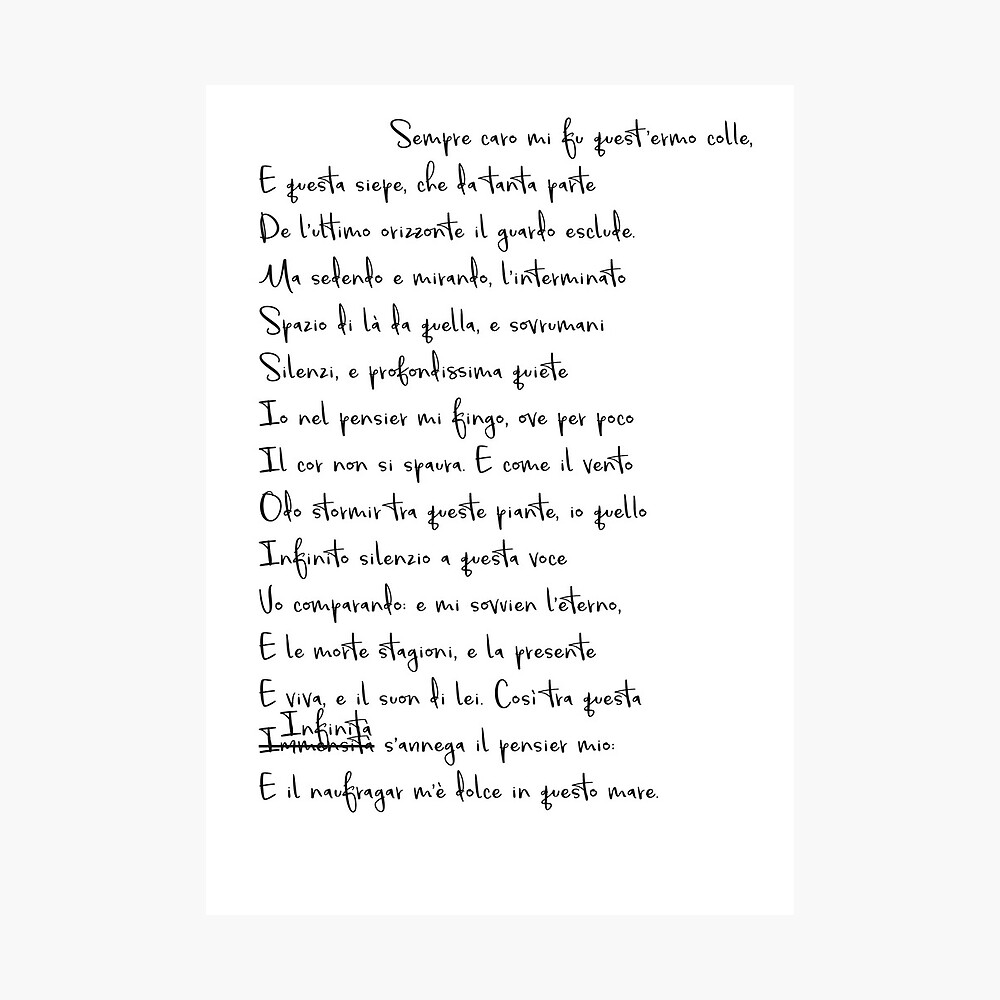 Sempre caro mi fu quest'ermo colle,
E questa siepe, che da tanta parte
De l'ultimo orizzonte il guardo esclude.
Ma sedendo e mirando, l'interminato
Spazio di là da quella, e sovrumani
Silenzi, e profondissima quiete
Io nel pensier mi fingo, ove per poco
Il cor non si spaura. E come il vento
Odo stormir tra queste piante, io quello
Infinito silenzio a questa voce
Vo comparando: e mi sovvien l'eterno,
E le morte stagioni, e la presente
E viva, e il suon di lei. Così tra questa
Infinità
Immensità s'annega il pensier mio:
E il naufragar m'è dolce in questo mare.